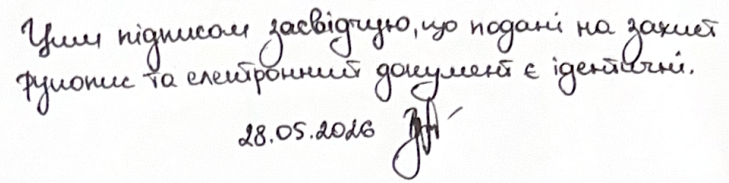 Цим підписом засвідчую, що подані на захист
рукопис та електронний документ є ідентичні.
28.05.2026